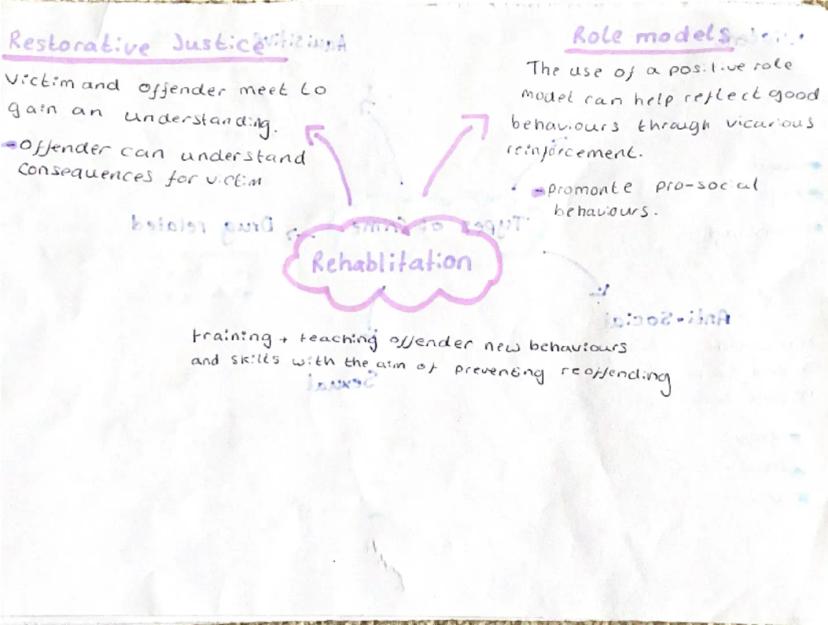 Restorative Justice
Victim and offender meet to
gain an understanding.
- Offender can understand
consequences for victim
Role models
The use of a positive role
model can help reflect good
behaviours through vicarious
reinforcement.
- promonte pro-social
behaviours.
Rehablitation
training + teaching offender new behaviours
and skills with the aim of preventing reoffending
Types of crime
Drug related
Anti-Social
Sexual